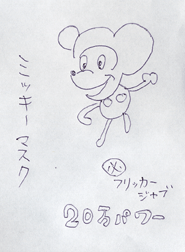 ミッキーマスク
必
フリッカー
ジャブ
20万パワー